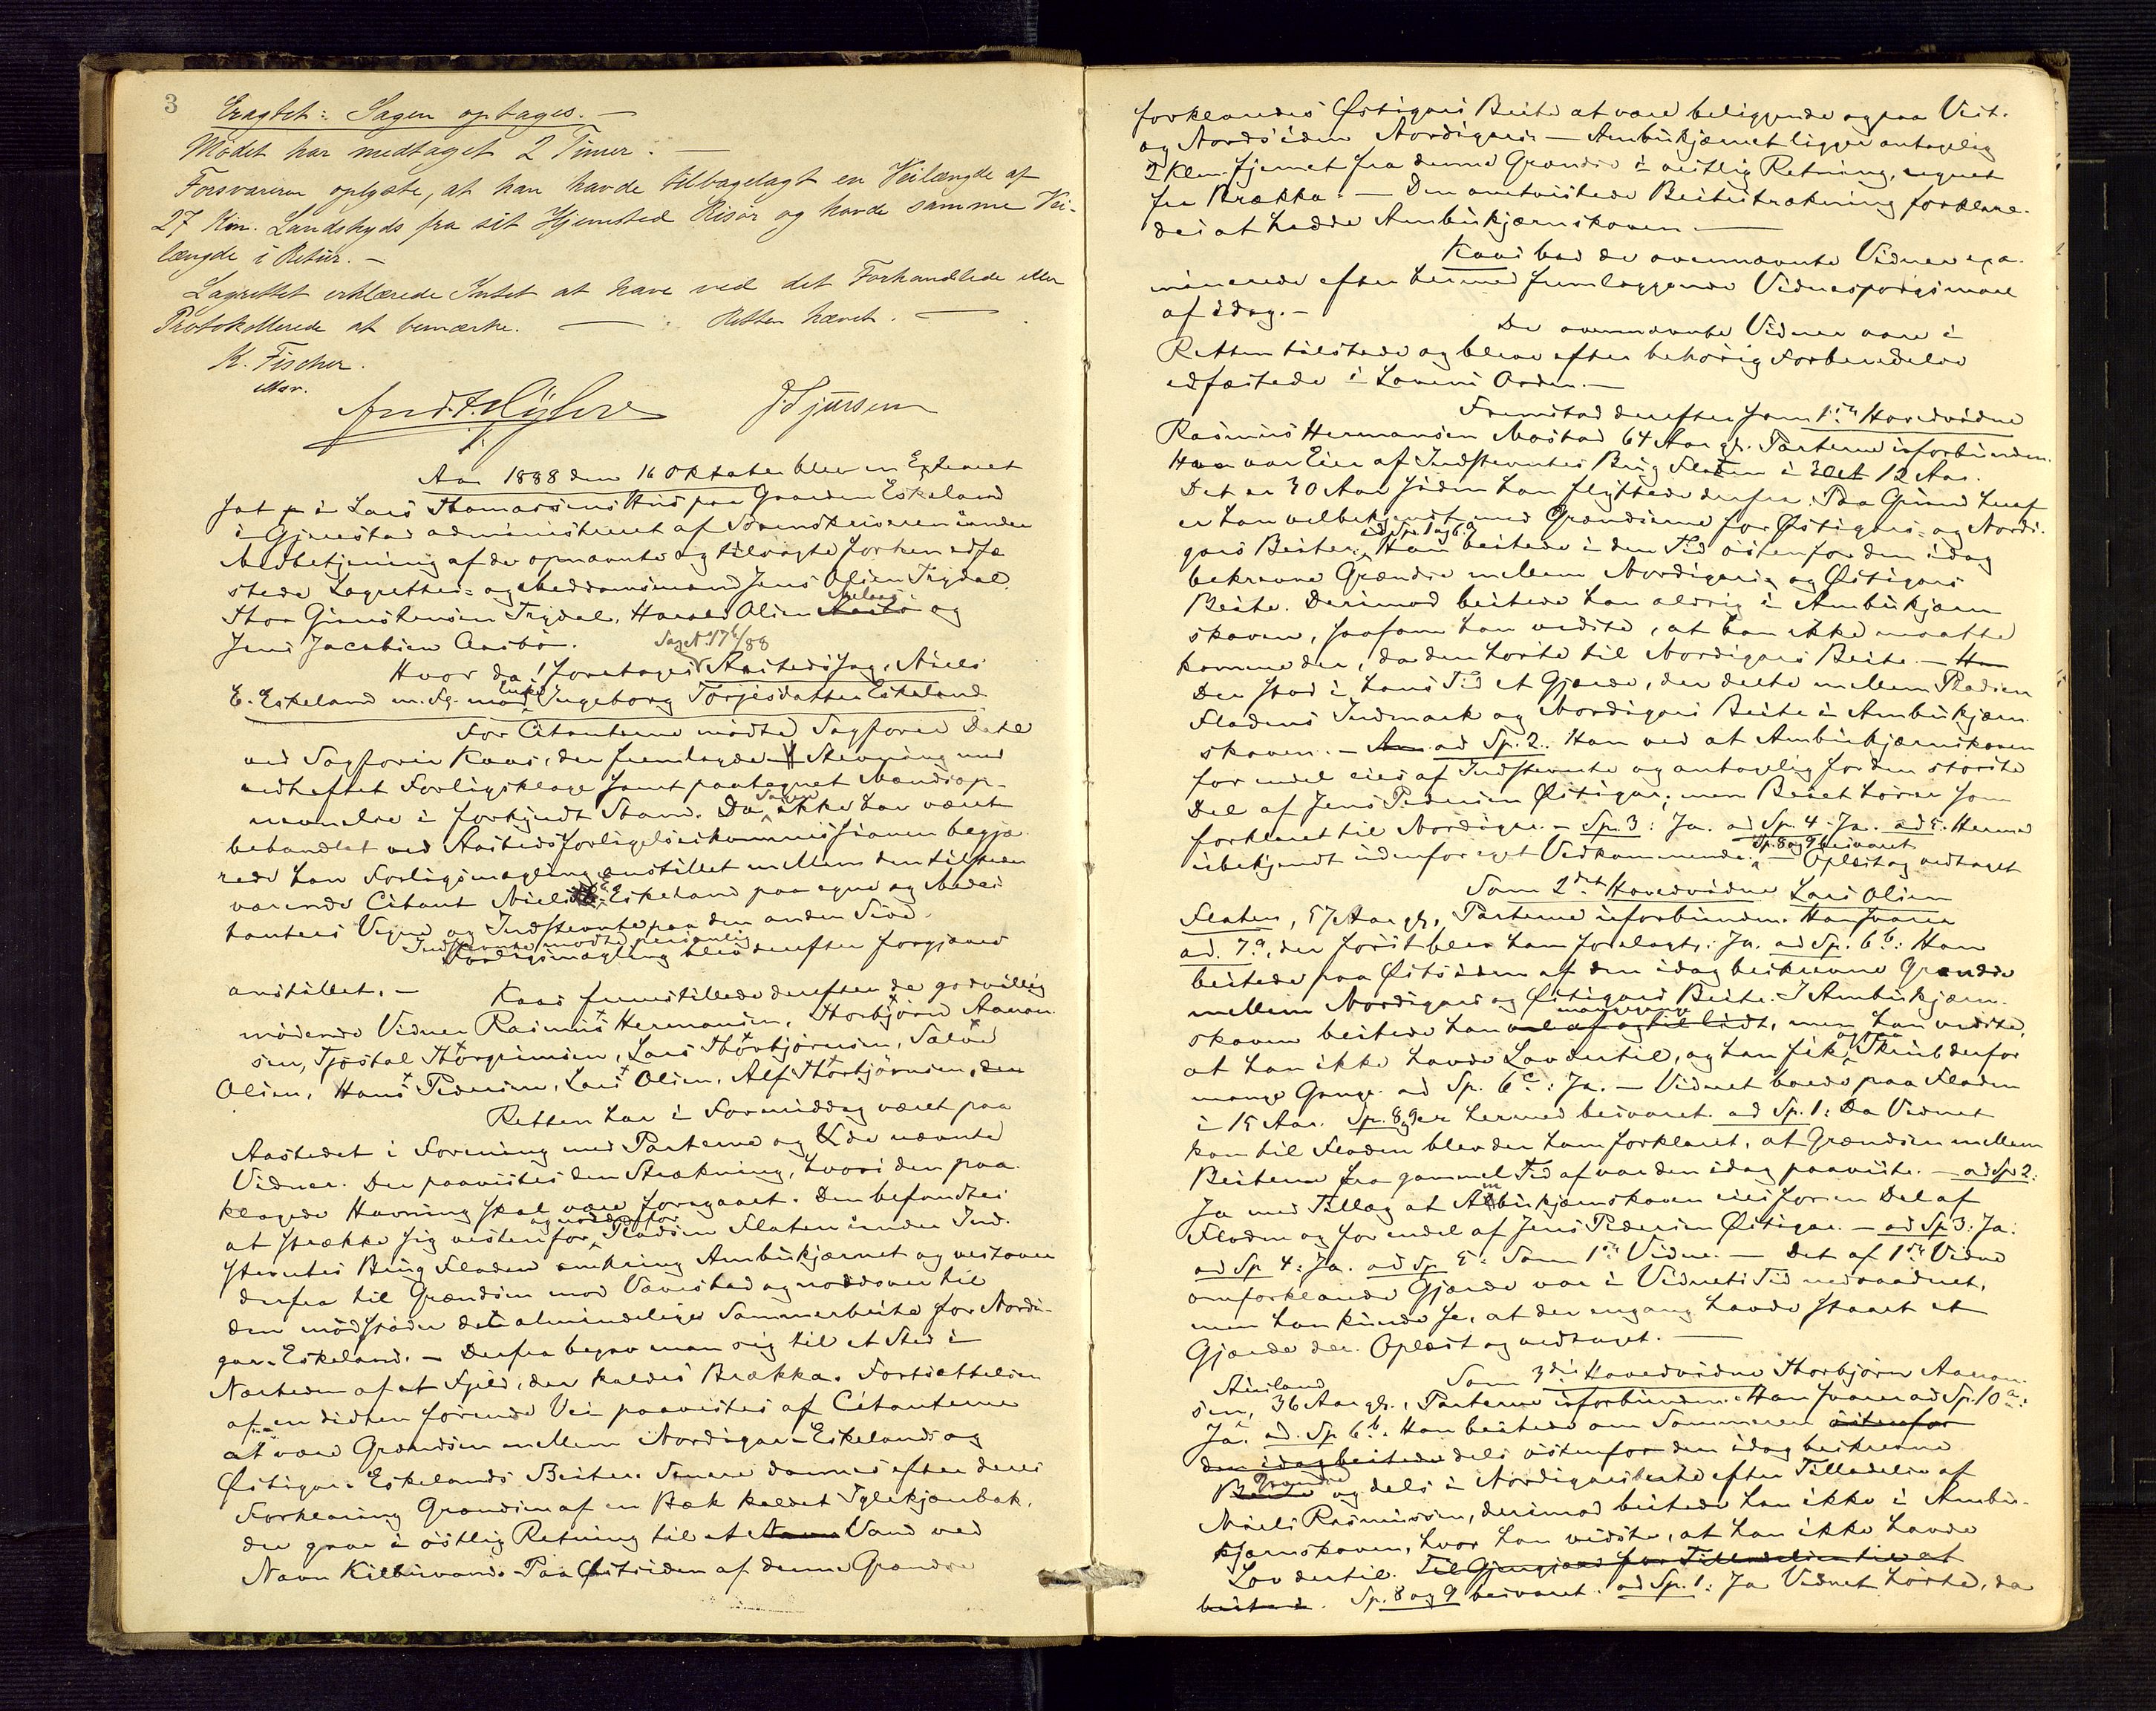 3
Eragtet: Sagen optages. —
Mödet har medtaget 2 Timer. —
Forsvareren oplyste, at han havde tilbagelagt en Veilængde af
27 Km. Landskyds fra sit Hjemsted Risør og havde samme Vei-
længde i Retur. —
Lagrettet erklærede Intet at have ved det Forhandlede eller
Protokollerede at bemærke. — Retten hævet. —
K. Fischer.
Aar 1888 den 16 Oktober blev en Extraret
sat i Lars Thomassens Hus paa Gaarden Eskeland
i Gjerestad administreret af Sorenskriveren under
Medbetjening af de opnævnte og tilvagte forhen edfæ
stede Lagrettes- og Meddomsmænd Jens Olsen Trydal
Thor Gunstensen Trydal, Harald Olsen og
Jens Jacobsen Aasbö.
Sag No 17 6/88
Hvor da! foretoges Aastedssag, Niels
E. Eskeland m. Fl. mod Enke Ingeborg Torjesdatter Eskeland
For Citanterne mödte Sagförer Dahl
ved Sagförer Kaas, der fremlagde Stevning med
vedheftet Forligsklage samt paategnet Mandsop-
nævnelse i forkyndt Stand. Da Sagen ikke har været
behandlet ved Aastedsforligelseskommissionen begjæ-
rede han Forligsmægling anstillet mellem den tilstede-
værende Citant Niels E. Eskeland paa egne og Medci-
tanters Vegne og Indstevnte paa den anden Side.
Indstevnte mødte personlig
Forligsmægling blev derefter forgjæves
anstillet. —
Kaas fremstillede derefter de godvillig
mödende Vidner Rasmus Hermansen, Thorbjörn Aanon
sen, Tjöstal Thorgrimsen, Lars Thorbjörnsen, Salve
Olsen, Hans Pedersen, Lars Olsen, Alf Thorbjörnsen, den
Retten har i Formiddag været paa
Aastedet i Forening med Parterne og de nævnte
Vidner. Der paavistes den Strækning, hvori den paa-
klagede Havning skal være foregaaet. Den befandtes
at strække sig vestenfor og nordenfor Pladsen Flaten under Ind-
stevntes Brug Fladen omkring Ambukjærnet og vestover
derfra til Grændsen mod Vævestad og nordover til
den mödstöder det almindelige Sommerbeite for Nordi-
gar-Eskeland. — Derfra begav man sig til et Sted i
Nærheden af et Fjeld, der kaldes Brækka. Fortsættelsen
af en didhen förende Vei paavistes af Citanterne
at være Grændsen mellem Nordigar-Eskelands og
Östigar-Eskelands Beiter. Senere dannes efter deres
Forklaring Grændsen af en Bæk kaldet Iglekjærnbæk,
der gaar i östlig Retning til et Navn Vand ved
Navn Kilburvand. Paa Östsiden af denne Grændse
forklaredes Östigars Beite at være beliggende og paa Vest-
og Nordsiden Nordigars. — Ambukjærnet ligger antagelig
2 Klm. fjernet fra denne Grændse i vestlig Retning, regnet
fra Brækka. — Den omtvistede Beitestrækning forklare-
des at hedde Ambukjærnskoven. —
Kaas bad de ovennævnte Vidner exa-
minerede efter hermed fremlæggende Vidnespörgsmaal
af idag. —
De ovennævnte Vidner vare i
Retten tilstede og bleve efter behörig Forberedelse
edfæstede i Lovens Orden. —
Fremstod derefter som 1ste Hovedvidne
Rasmus Hermansen Mostad 64 Aar gl. Parterne uforbunden.
Han var Eier af Indstevntes Brug Fladen i 12 Aar.
Det er 30 Aar siden han flyttede derfra. Paa Grund heraf
er han velbekjendt med Grændserne for Östigars- og Nordi-
gars Beiter. ad Sp. 1 og 6a Han beitede i den Tid östenfor den idag
bekrevne Grændse mellem Nordigars og Östigars
Beite. Derimod beitede han aldrig i Ambukjærn
skoven, saasom han vidste, at han ikke maatte
komme der, da den hörte til Nordigars Beite. — Han
Der stod i hans Tid et Gjærde, der delte mellem Pladsen
Fladens Indmark og Nordigars Beite i Ambukjærn-
skoven. — ad Sp. 2. Han ved at Ambukjærnskoven
for endel eies af Indstevnte og antagelig for den störste
Del af Jens Pedersen Östigar, men Beitet hörer som
forklaret til Nordigar. — Sp. 3: Ja. ad Sp. 4. Ja. ad 5. Hermed
ubekjendt udenfor eget Vedkommende. Sp. 8 og 9 besvaret — Oplæst og vedtaget
Som 2det Hovedvidne Lars Olsen
Flaten, 57 Aar gl., Parterne uforbunden. Han svarer
ad. 7a, der först blev ham forelagt: Ja. ad Sp. 6b: Han
beitede paa Östsiden af den idag beskrevne Grændse
mellem Nordigars og Östigars Beite. I Ambukjærn-
skoven beitede han mange Gange vel af og til lidt, men han vidste,
at han ikke havde Lov dertil, og han fik ogsaa Skub derfor
mange Gange. ad Sp. 6c: Ja. — Vidnet boede paa Fladen
i 15 Aar. Sp. 8 og 9 er hermed besvaret. ad Sp. 1: Da Vidnet
kom til Fladen blev der ham forklaret, at Grændsen mellem
Beiterne fra gammel Tid af var den idag paaviste. — ad Sp 2:
Ja med Tillæg at Ambukjærnskoven eies for en Del af
Fladen og for endel af Jens Pedersen Östigar. — ad Sp 3: Ja.
ad Sp 4: Ja. ad Sp 5: Som 1ste Vidne. — Det af 1ste Vidne
omforklarede Gjærde var i Vidnets Tid nedraadnet,
men han kunde se, at der engang havde staaet et
Gjærde der. Oplæst og vedtaget. —
Som 3die Hovedvidne Thorbjörn Aanon-
sen, 36 Aar gl., Parterne uforbunden. Han svarer ad Sp. 10a:
Ja. ad. Sp 6b. Han beitede om Sommeren östenfor
den idag beitede dels östenfor den idag beskrevne
Beite Grændse og dels i Nordigars beite efter Tilladelse af
Niels Rasmussen, derimod beitede han ikke i Ambu-
kjærnskoven, hvor han vidste, at han ikke havde
Lov dertil. Til Gjengjæld for Tilladelsen til at
beite i. Sp. 8 og 9 besvaret. ad Sp. 1: Ja Vidnet hörte, da